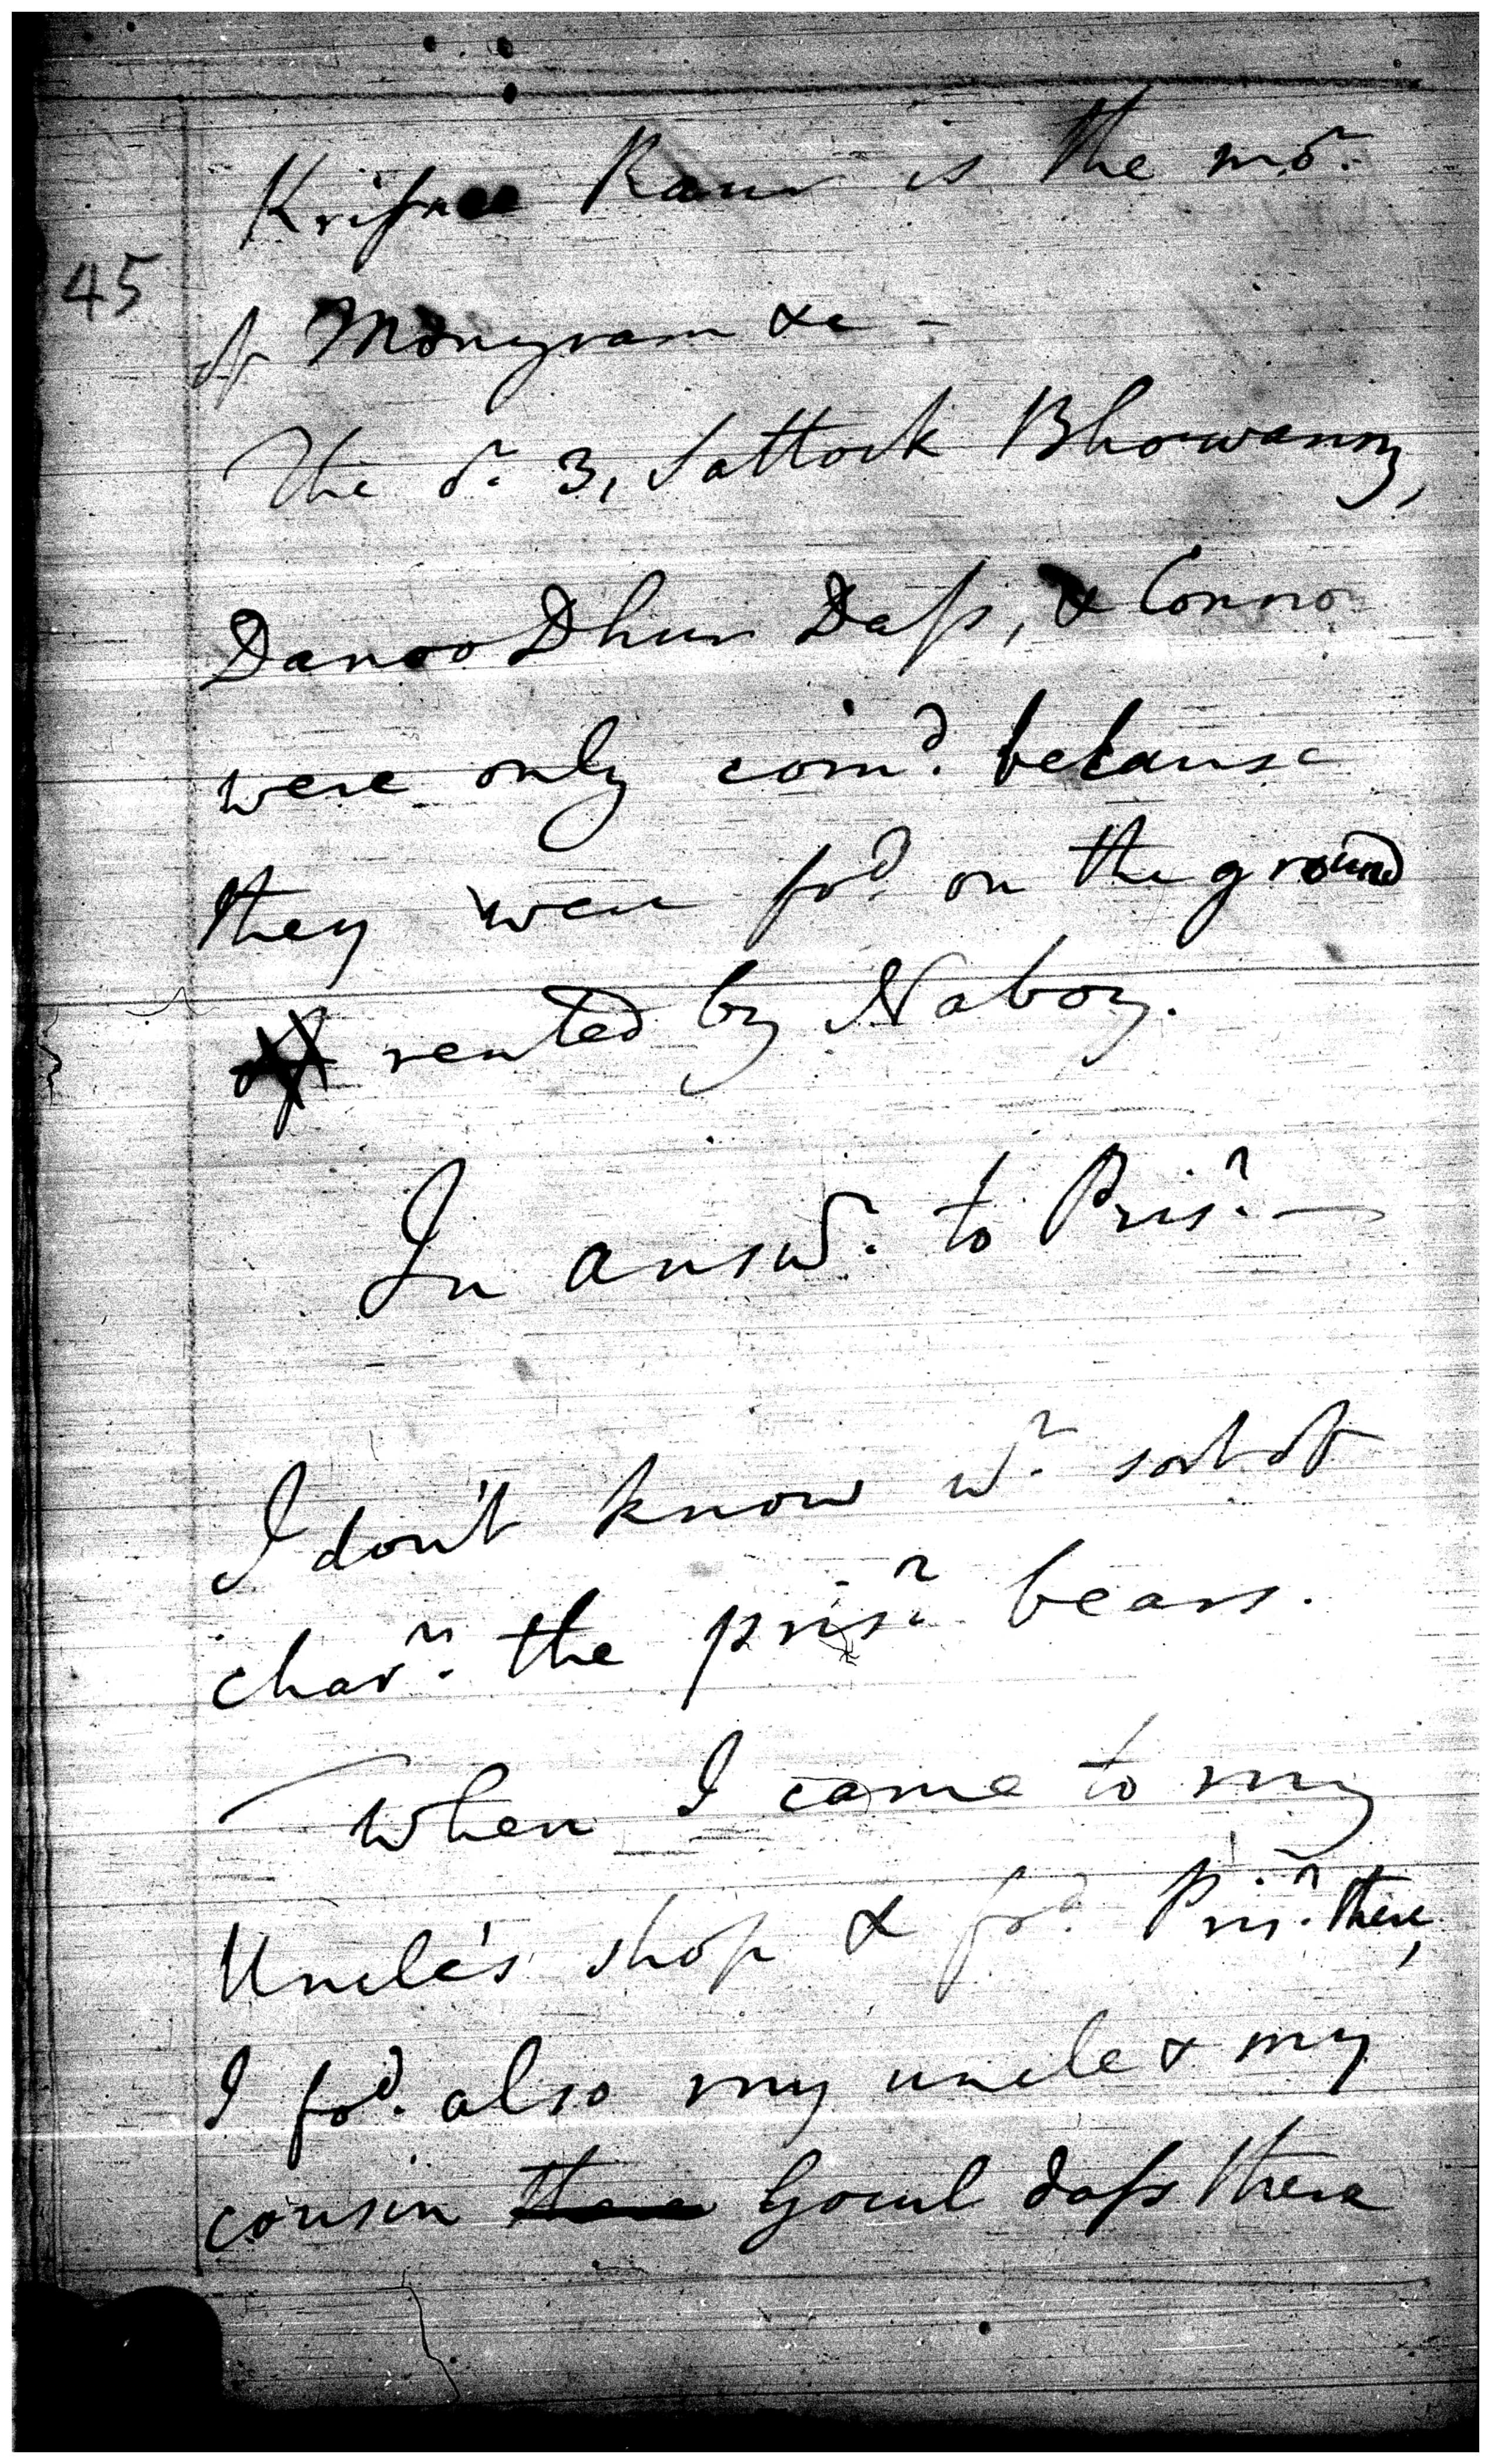 Krisnee Raur is the mo.r
45
of Monyram &c -
The or. 3, Sattock Bhowanny,
Danoo Dhun Dass, & Conno
were only com.d because
they were fo.d on the ground
rented by Naboy.
In answ.r to Pris.r —
I don't know w.t sort of
char.r the pris.r bears.
When I came to my
Uncle's shop & fo.d Pris.r there,
I fo.d also my uncle & my
cousin Gocul dass there